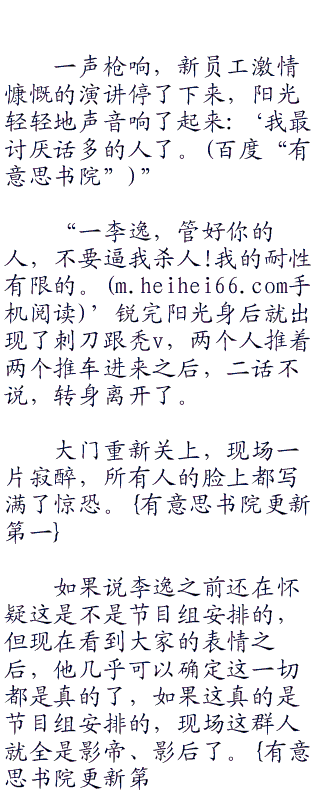 一声枪响，新员工激情
慷慨的演讲停了下来，阳光
轻轻地声音响了起来：‘我最
讨厌话多的人了。(百度“有
意思书院”)”
“一李逸，管好你的
人，不要逼我杀人!我的耐性
有限的。(m.heihei66.com手
机阅读)’锐完阳光身后就出
现了刺刀跟秃v，两个人推着
两个推车进来之后，二话不
说，转身离开了。
大门重新关上，现场一
片寂醉，所有人的脸上都写
满了惊恐。{有意思书院更新
第一}
如果说李逸之前还在怀
疑这是不是节目组安排的，
但现在看到大家的表情之
后，他几乎可以确定这一切
都是真的了，如果这真的是
节目组安排的，现场这群人
就全是影帝、影后了。{有意
思书院更新第